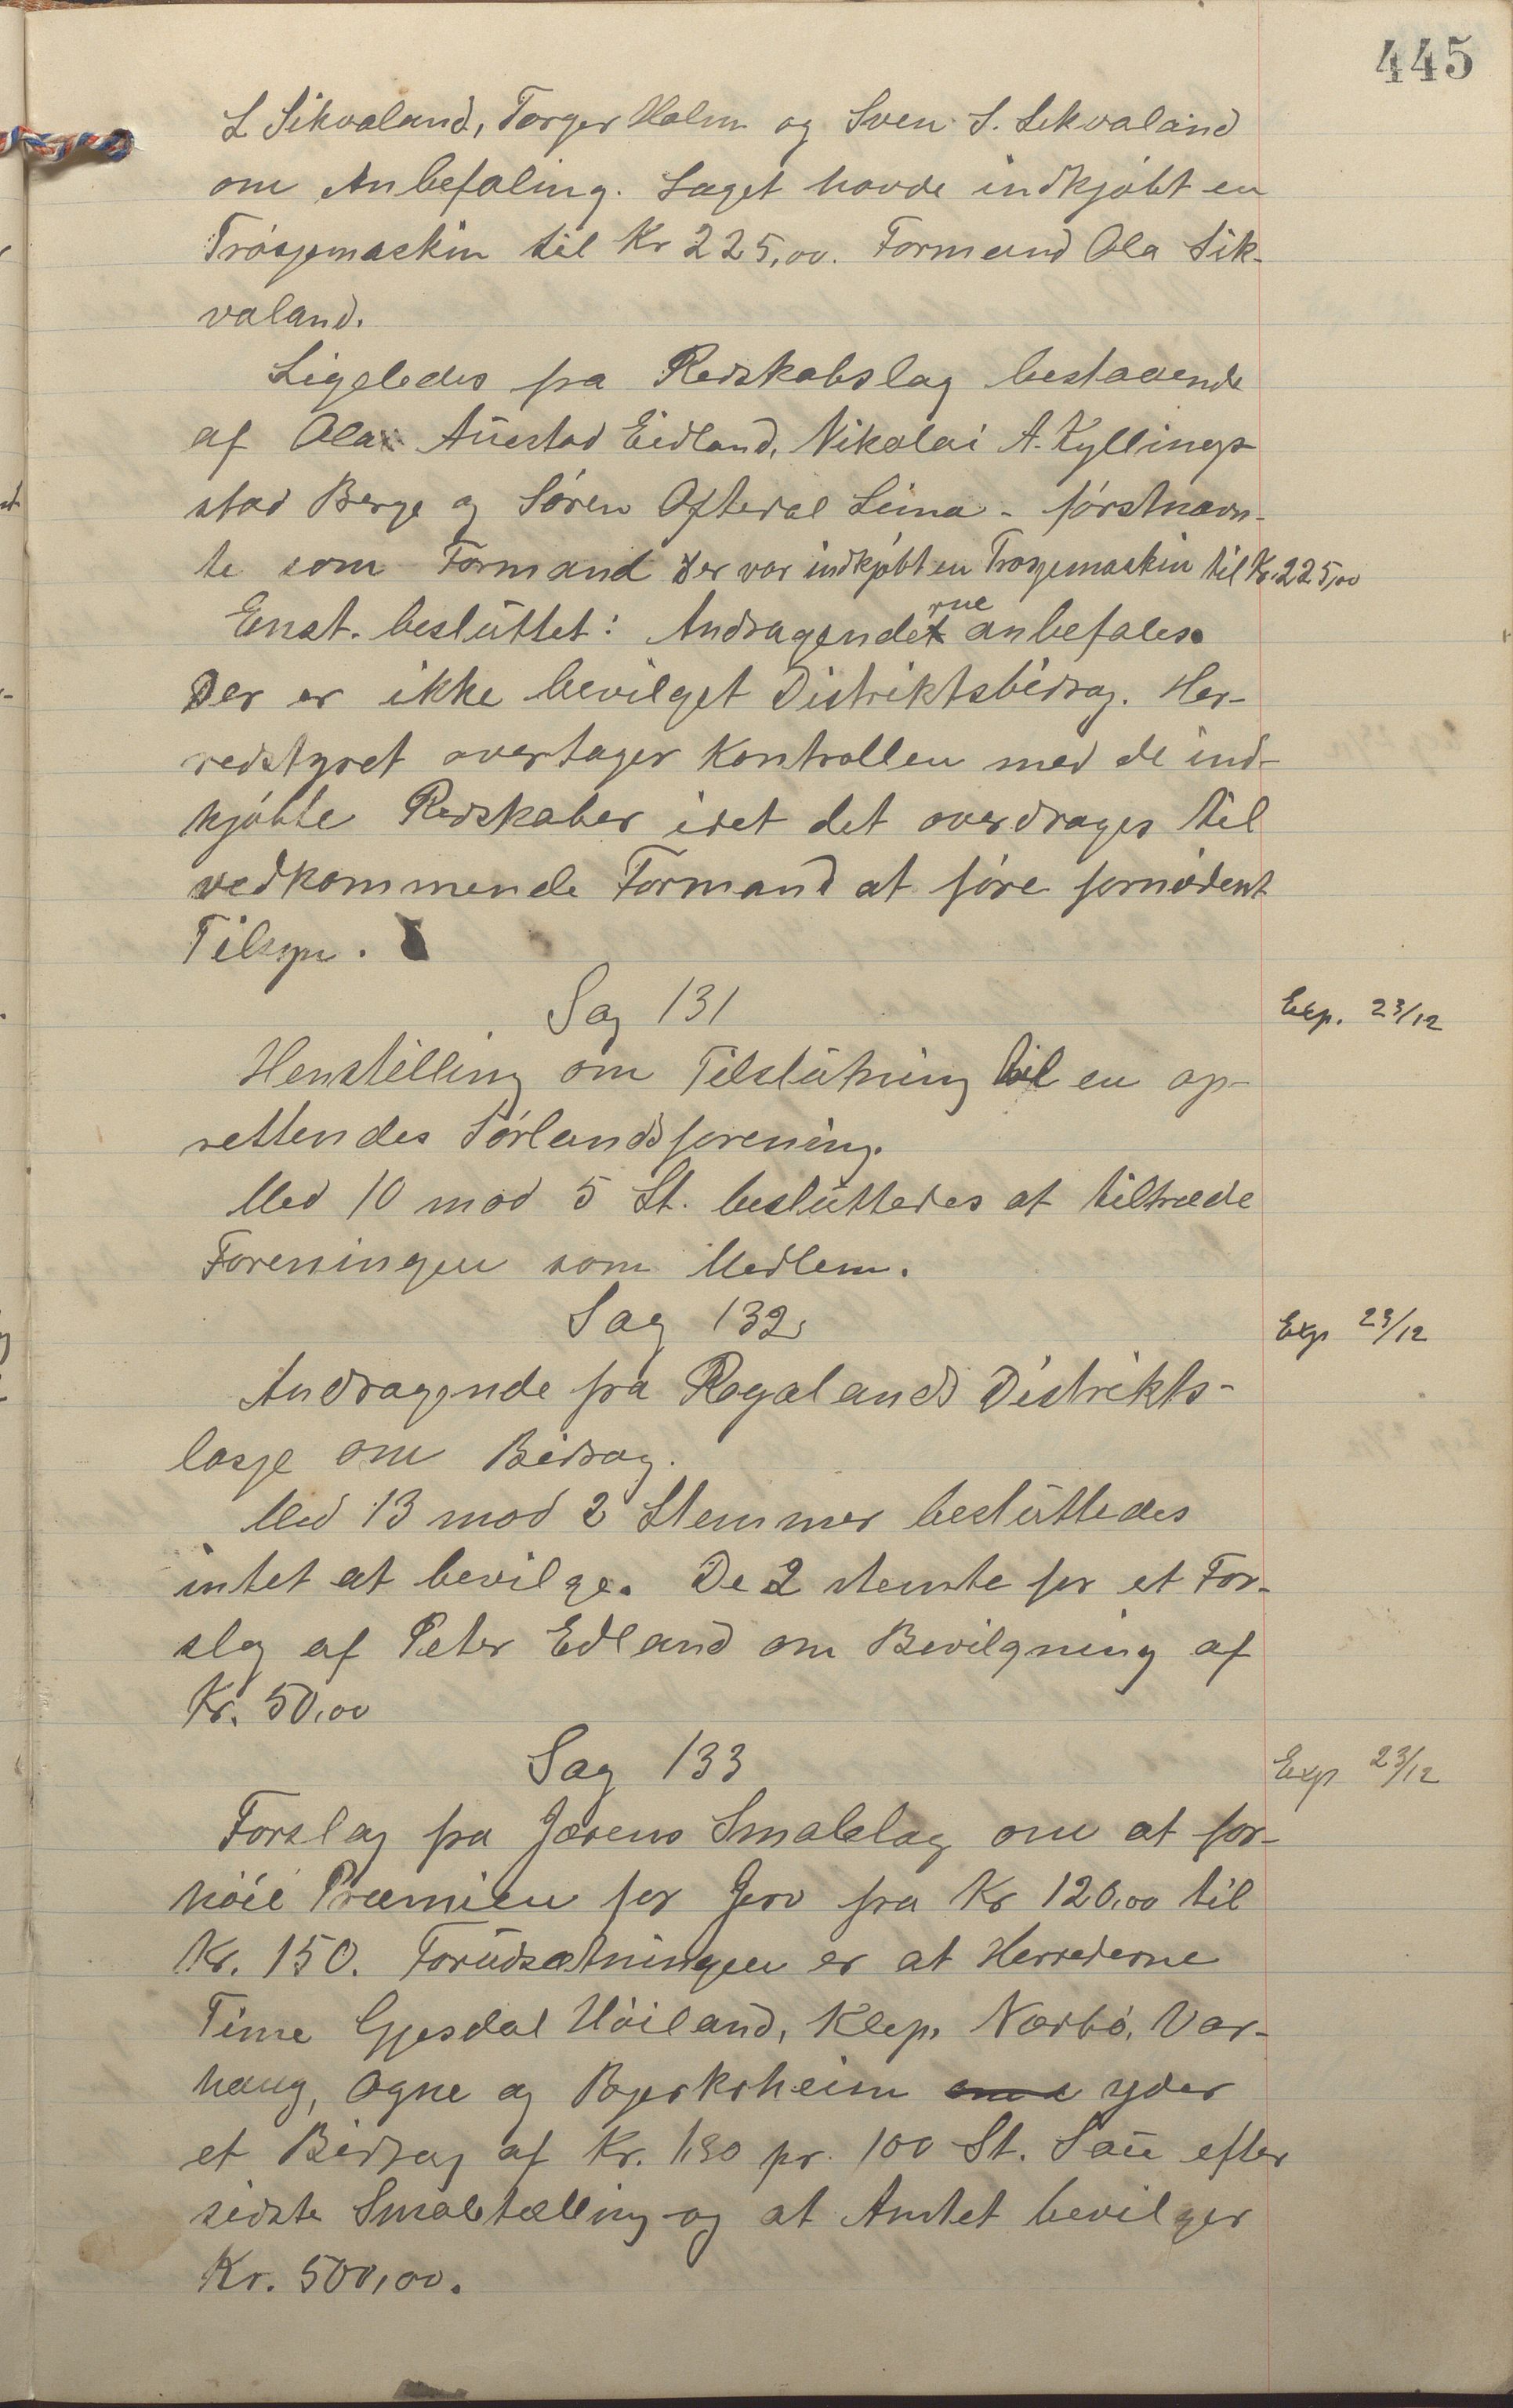 445
L Sikvaland, Torger Holm og Sven S. Sikvaland
om Anbefaling. Laget havde indkjøbt en
Trøsgemaskin til Kr 225,00. Formand Ola Sik-
valand.
Ligeledes fra Redskabslag bestaaende
af Ola Auestad Eidland, Nikolai A. Kyllings-
stad Berge og Søren Oftedal Lima - førstnævn-
te som Formand Der var indkjøbt en Trøsgemaskin til Kr. 225,00
Enst. besluttet: Andragenderne anbefales.
Der er ikke bevilget Distriktsbidrag. Her-
redstyret overtager Kontrollen med de ind-
kjøbte Redskaber idet det overdrages til
vedkommende Formand at føre fornødent
Tilsyn.
Sag 131
Exp. 23/12
Henstilling om Tilslutning til en op-
rettendes Sørlandsforening.
Med 10 mod 5 St. besluttedes at tiltræde
Foreningen som Medlem.
Sag 132
Exp 23/12
Andragende fra Rogalands Distrikts-
losje om Bidrag.
Med 13 mod 2 Stemmer besluttedes
intet at bevilge. De 2 stemte for et For-
slag af Peter Edland om Bevilgning af
Kr. 50,00
Sag 133
Exp 23/12
Forslag fra Jærens Smalelag om at for-
høie Præmien for Jerv fra Kr 120,00 til
Kr. 150. Forudsætningen er at Herrederne
Time Gjesdal Høiland, Klep, Nærbø, Var-
haug, Ogne og Bjerkrheim yder
et Bidrag af Kr. 1,30 pr. 100 St. Sau efter
sidste Smaletælling og at Amtet bevilger
Kr. 500,00.